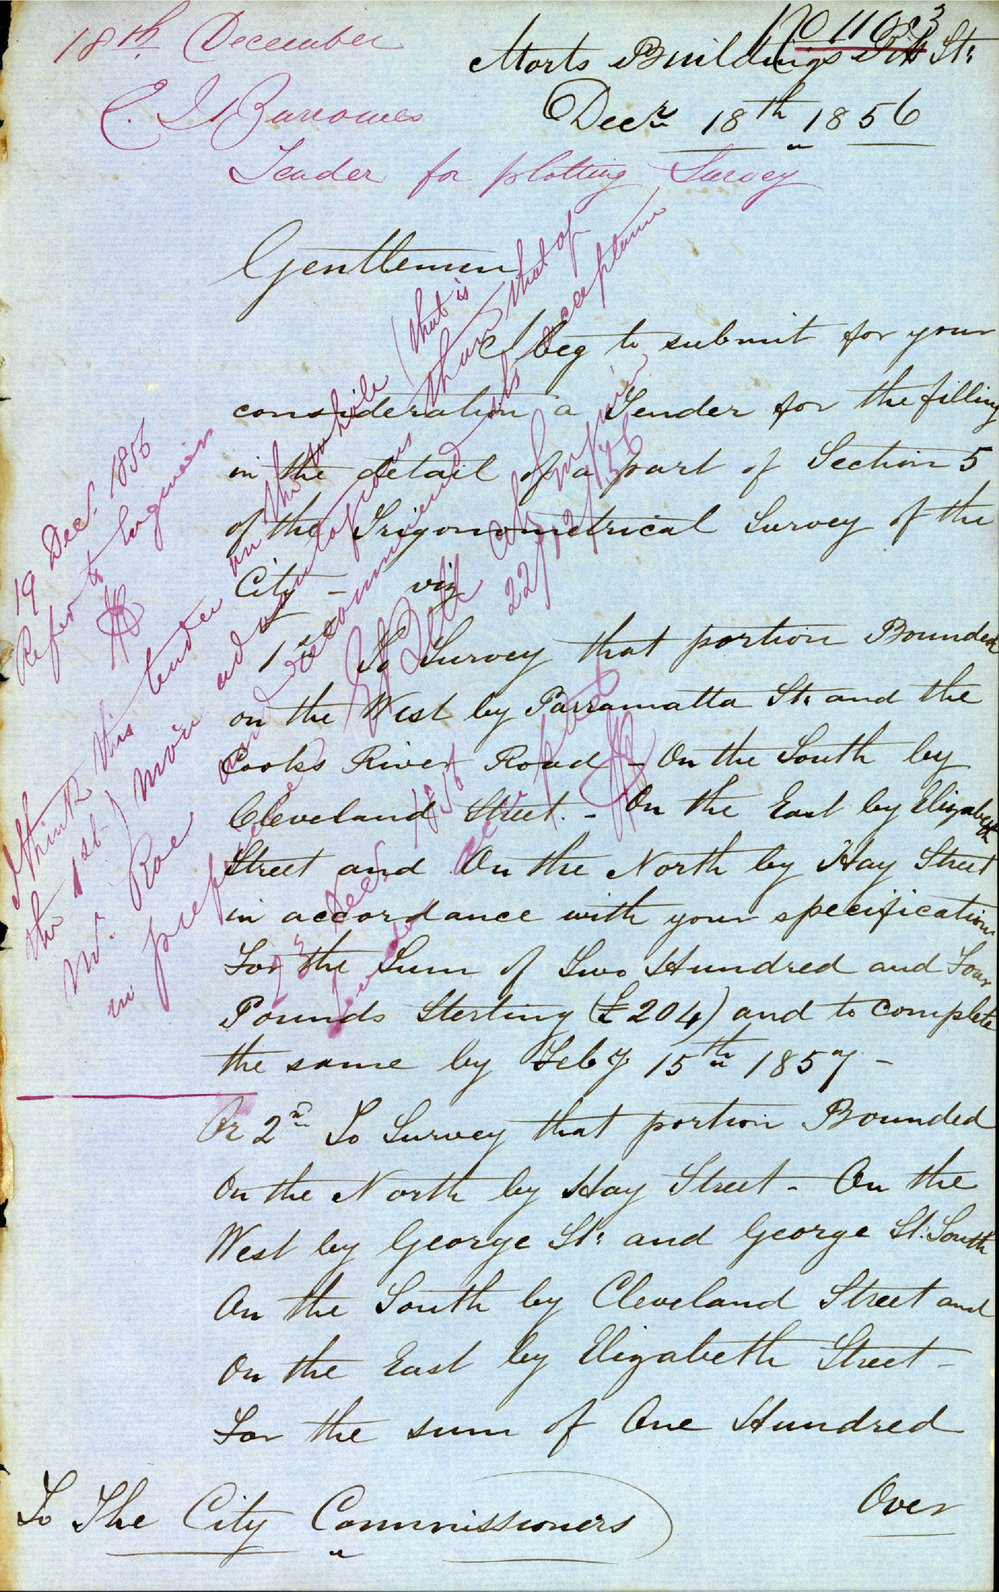 18th December
Morts Buildings Pitt St:
C. J. Burrowes
Decr. 18th 1856
Tender for plotting Survey
Gentlemen
I beg to submit for your
consideration a Tender for the filling
in the detail of a part of Section 5
of the Trigonometrical Survey of the
City – viz
1st To Survey that portion Bounded
on the West by Parramatta St: and the
Cooks River Road – On the South by
Cleveland Street. – On the East by Elizabeth
Street and On the North by Hay Street
in accordance with your specification
For the Sum of Two Hundred and Four
Pounds Sterling (£204) and to complete
the same by Feby 15th 1857 –
Or 2nd To Survey that portion Bounded
On the North by Hay Street – On the
West by George St: and George St: South
On the South by Cleveland Street and
On the East by Elizabeth Street –
For the sum of One Hundred
Over
To The City Commissioners
19 Decr. 1856
Refer to Engineer
I think this tender on the whole (that is
the 1st) more advantageous than that of
Mr. Rae and recommend its acceptance
in preference
22/12/56
23 Decr 1856